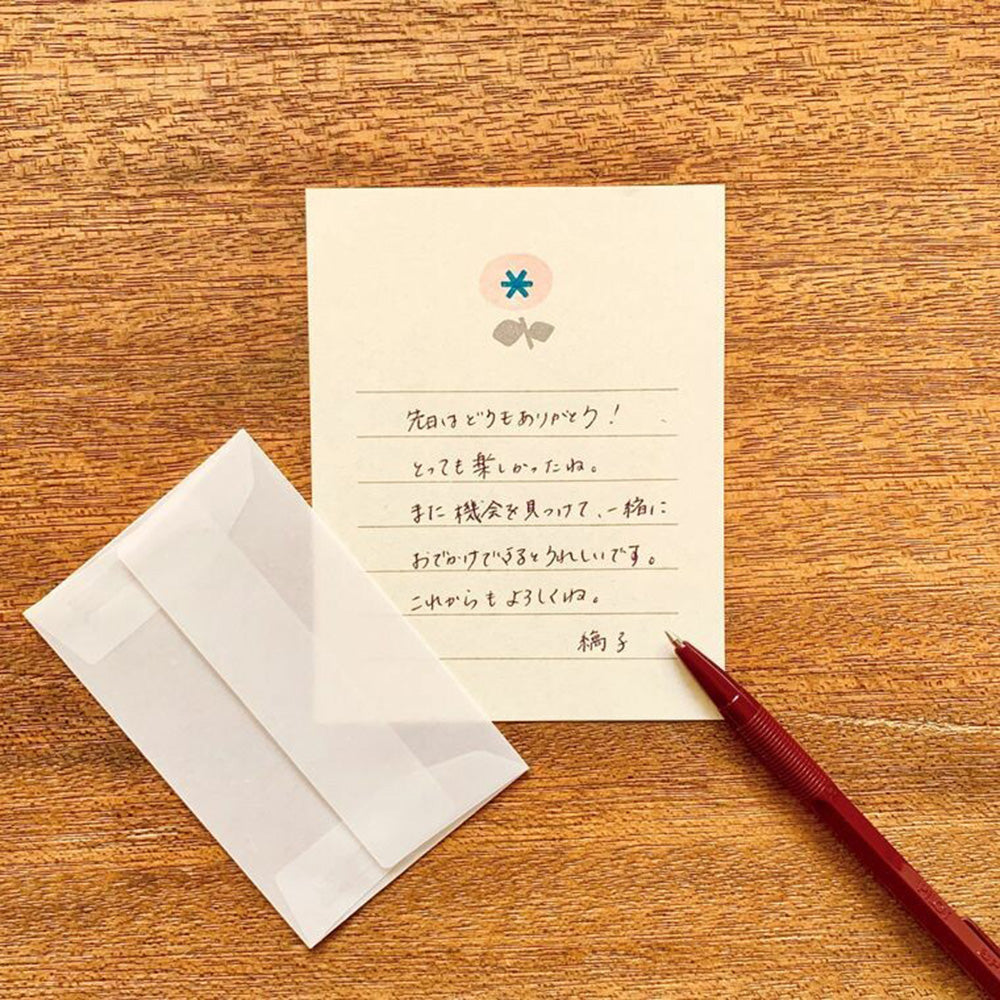 先日はどうもありがとう！
とっても楽しかったね。
また機会を見つけて、一緒に
おでかけできるとうれしいです。
これからもよろしくね。
子
PILOT